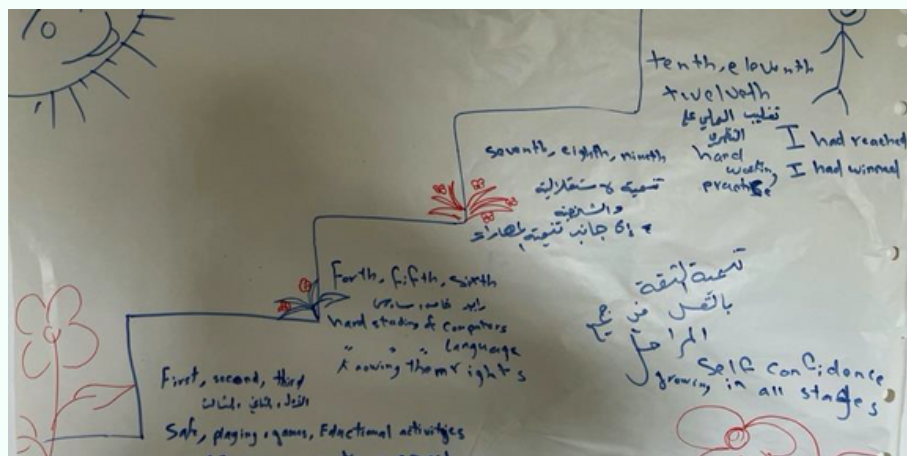 tenth, elounth
twelvoth
تغليب العملي على
النظري
hard
working
practise
I had reached
I had winned
seventh, eighth, nineth
تنمية الاستقلالية
والشخصية
جانب تنمية المهارات
Forth, fifth, sixth
رابع خامس، سادس
hard studing of computers
" " " language
Knowing themr rights
تنمية الثقة
بالنفس في جميع
المراحل
Self confidence
growing in all stages
First, second, third
الأول، الثاني، الثالث
Safe, playing, games, Eductional activities